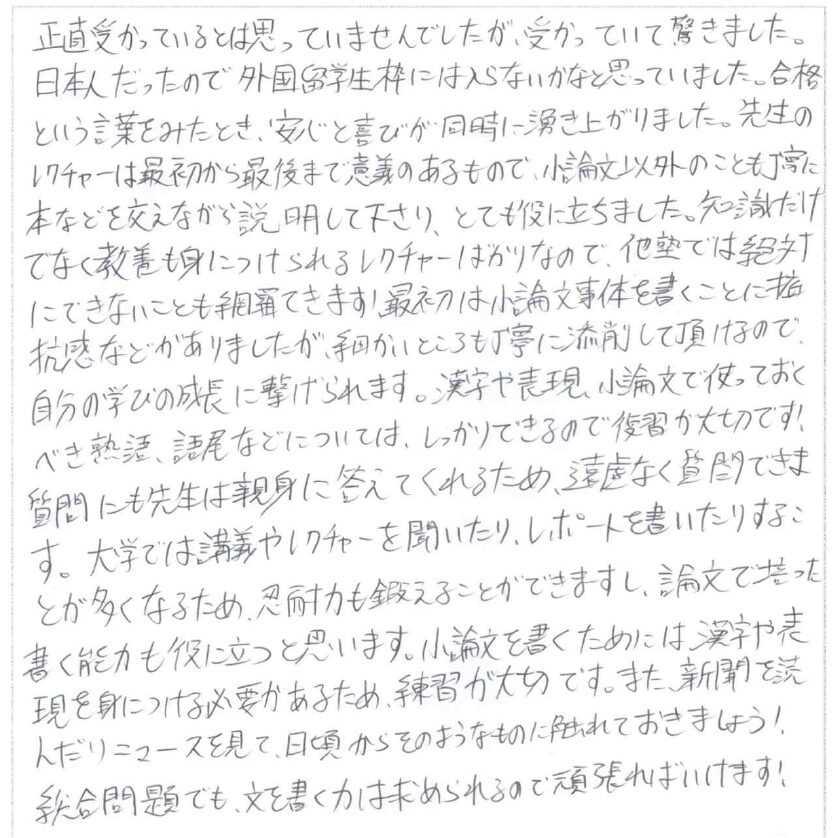 正直受かっているとは思っていませんでしたが、受かっていて驚きました。
日本人だったので外国留学生枠には入らないかなと思っていました。合格
という言葉をみたとき、安心と喜びが同時に湧き上がりました。先生の
レクチャーは最初から最後まで意義のあるもので、小論文以外のことも丁寧に
本などを交えながら説明して下さり、とても役に立ちました。知識だけ
でなく教養も身につけられるレクチャーばかりなので、他塾では絶対
にできないことも網羅できます!最初は小論文事体を書くことに抵
抗感などがありましたが、細かいところも丁寧に添削して頂けるので、
自分の学びの成長に繋げられます。漢字や表現、小論文で使っておく
べき熟語、語尾などについては、しっかりできるので復習が大切です!
質問にも先生は親身に答えてくれるため、遠慮なく質問できま
す。大学では講義やレクチャーを聞いたり、レポートを書いたりするこ
とが多くなるため、忍耐力も鍛えることができますし、論文で培った
書く能力も役に立つと思います。小論文を書くためには漢字や表
現を身につける必要があるため、練習が大切です。また、新聞を読
んだりニュースを見て、日頃からそのようなものに触れておきましょう!
総合問題でも、文を書く力は求められるので頑張ればいけます!